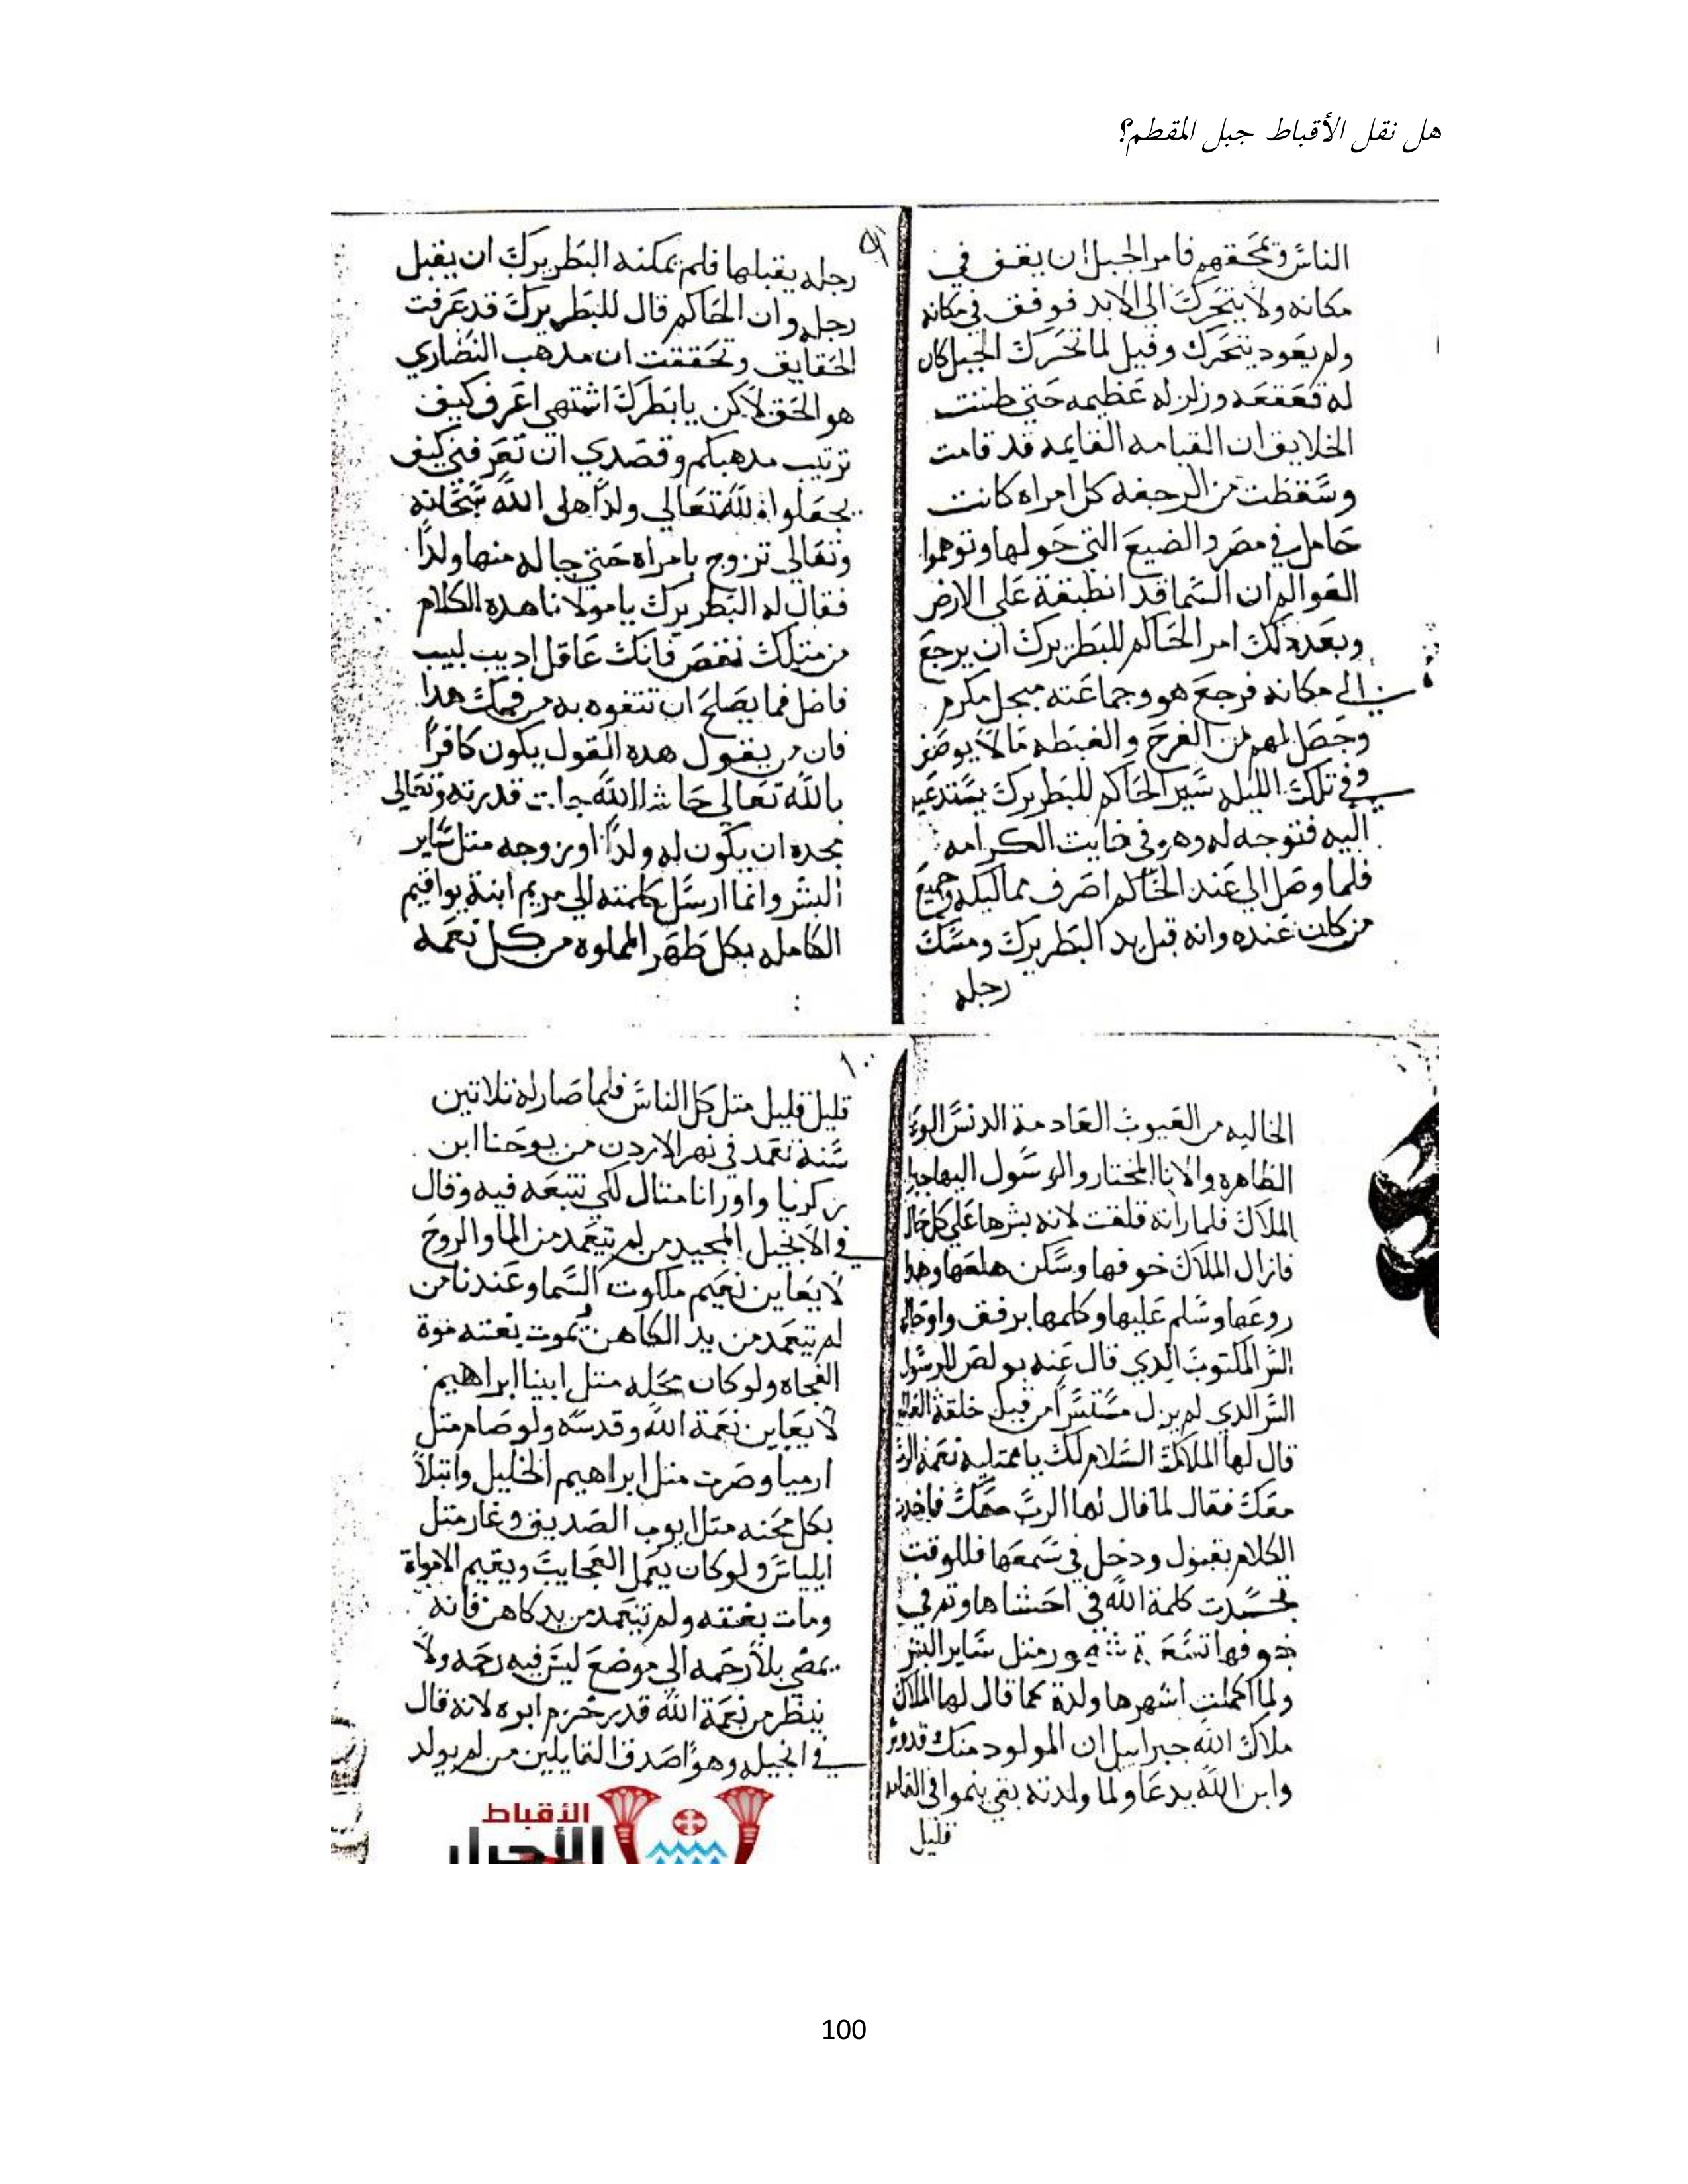 هل نقل الأقباط جبل المقطم؟
الناس وتمحقهم فامر الجبل ان يقف في
مكانه ولا يتحرك الى الابد فوقف في مكانه
ولم يعود يتحرك وقيل لما تحرك الجبل كان
له قعقعه وزلزله عظيمه حتي ظننت
الخلايق ان القيامه القايمه قد قامت
وسقطت من الرجفه كل امراه كانت
حامل في مصر والضيع التي حولها وتوهموا
العوالم ان السما قد انطبقة علي الارض
وبعد دلك امر الحاكم للبطريرك ان يرجع
الي مكانه فرجع هو وجماعته مبجل مكرم
وحصل لهم من الفرح والغبطه ما لا يوصف
وفي تلك الليله سير الحاكم للبطريرك يستدعيه
اليه فتوجه له وهو في غايت الكرامه
فلما وصل الي عند الحاكم اصرف مماليكه وجميع
من كان عنده وانه قبل يد البطريرك ومسك
رجله
٩
رجله يقبلها فلم يمكنه البطريرك ان يقبل
رجله وان الحاكم قال للبطريرك قد عرفت
الحقايق وتحققت ان مدهب النصاري
هو الحق لاكن يا بطرك اشتهي اعرف كيف
ترتيب مدهبكم وقصدي ان تعرفني كيف
يجعلوا لله تعالي ولداً هل الله سبحانه
وتعالى تزوج بامراه حتي جا له منها ولداً
فقال له البطريرك يا مولانا هده الكلام
من متلك نقص فانك عاقل اديب لبيب
فاضل فما يصلح ان تتفوه به من فمك هدا
فان من يقول هده القول يكون كافراً
بالله تعالي حاشا لله جلت قدرته وتعالى
مجده ان يكون له ولداً او زوجه متل ساير
البشر وانما ارسل كلمته الي مريم ابنة يواقيم
الكامله بكل طهر المملوه من كل نعمه
الخاليه من العيوب العادمة الدنس
الطاهره والانا المختار والرسول اليها جبرا
الملاك فلما راته قلقت لانه بشرها علي كل حال
فازال الملاك خوفها وسكن هلعها وهدا
روعها وسلم عليها وكلمها برفق واوحا
السر المكتوب الدي قال عنه بولص الرسول
السر الدي لم يزل مستتراً من قبل خلقة العالم
قال لها الملاك السلام لك يا ممتليه نعمه الرب
معك فقال لما قال لها الرب معك فاخدت
الكلام بقبول ودخل في سمعها فللوقت
تجسدت كلمة الله في احشاها وتم في
جوفها تسعة شهور متل ساير البشر
ولما اكملت اشهرها ولدة كما قال لها الملاك
ملاك الله جبراييل ان المولود منك قدوس
وابن الله يدعا ولما ولدته بقي ينموا في القامه
قليل
١٠
قليل قليل متل كل الناس فلما صار له تلاتين
سنة تعمد في نهر الاردن من يوحنا ابن
زكريا واورانا متال لكي نتبعه فيه وقال
في الانجيل المجيد من لم يتعمد من الما والروح
لا يعاين نعيم ملكوت السما وعندنا من
لم يتعمد من يد الكاهن يموت بغته موة
الفجاه ولو كان محله متل ابينا ابراهيم
لا يعاين نعمة الله وقدسه ولو صام متل
ارميا وصرت متل ابراهيم الخليل وابتلا
بكل محنه متل ايوب الصديق وغار متل
ايلياس ولو كان يعمل العجايب ويقيم الامواة
ومات بغتته ولم يتعمد من يد كاهن فانه
يمضي بلا رحمه الي موضع ليس فيه رحمه ولا
ينظر من نعمة الله قدر خرم ابره لانه قال
في انجيله وهو اصدق القايلين من لم يولد
الأقباط
الأحرار
100